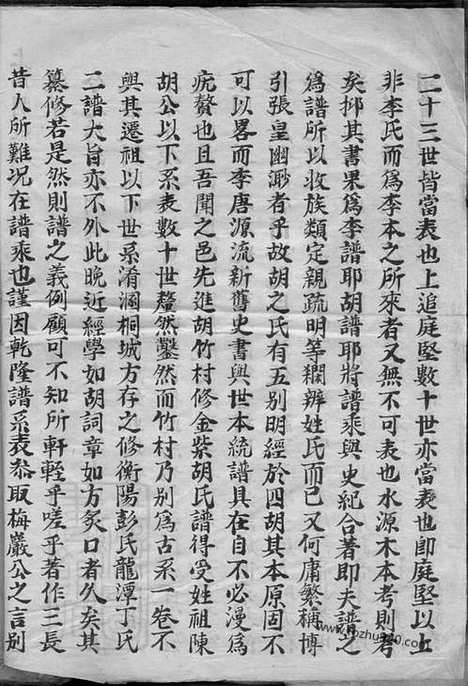 二十三世皆當表也上追庭堅數十世亦當表也卽庭堅以上
非李氏而爲李本之所來者又無不可表也水源木本考則考
矣抑其書果爲李譜耶胡譜耶將譜乘與史紀合著卽夫譜之
爲譜所以收族類定親疏明等襴辨姓氏而已又何庸繁稱博
引張皇幽渺者乎故胡之氏有五别明經於四胡其本原固不
可以畧而李唐源流新舊史書與世本統譜具在自不必漫爲
疣贅也且吾聞之邑先進胡竹村修金紫胡氏譜得受姓祖陳
胡公以下系表數十世釐然鑿然而竹村乃别爲古系一卷不
與其遷祖以下世系淆溷桐城方存之修衡陽彭氏龍潭丁氏
二譜大旨亦不外此晚近經學如胡詞章如方炙口者久矣其
纂修若是然則譜之義例顧可不知所軒輊乎嗟乎著作三長
昔人所難况在譜乘也謹因乾隆譜系表叅取梅巖公之言别
www.bzhu360.com